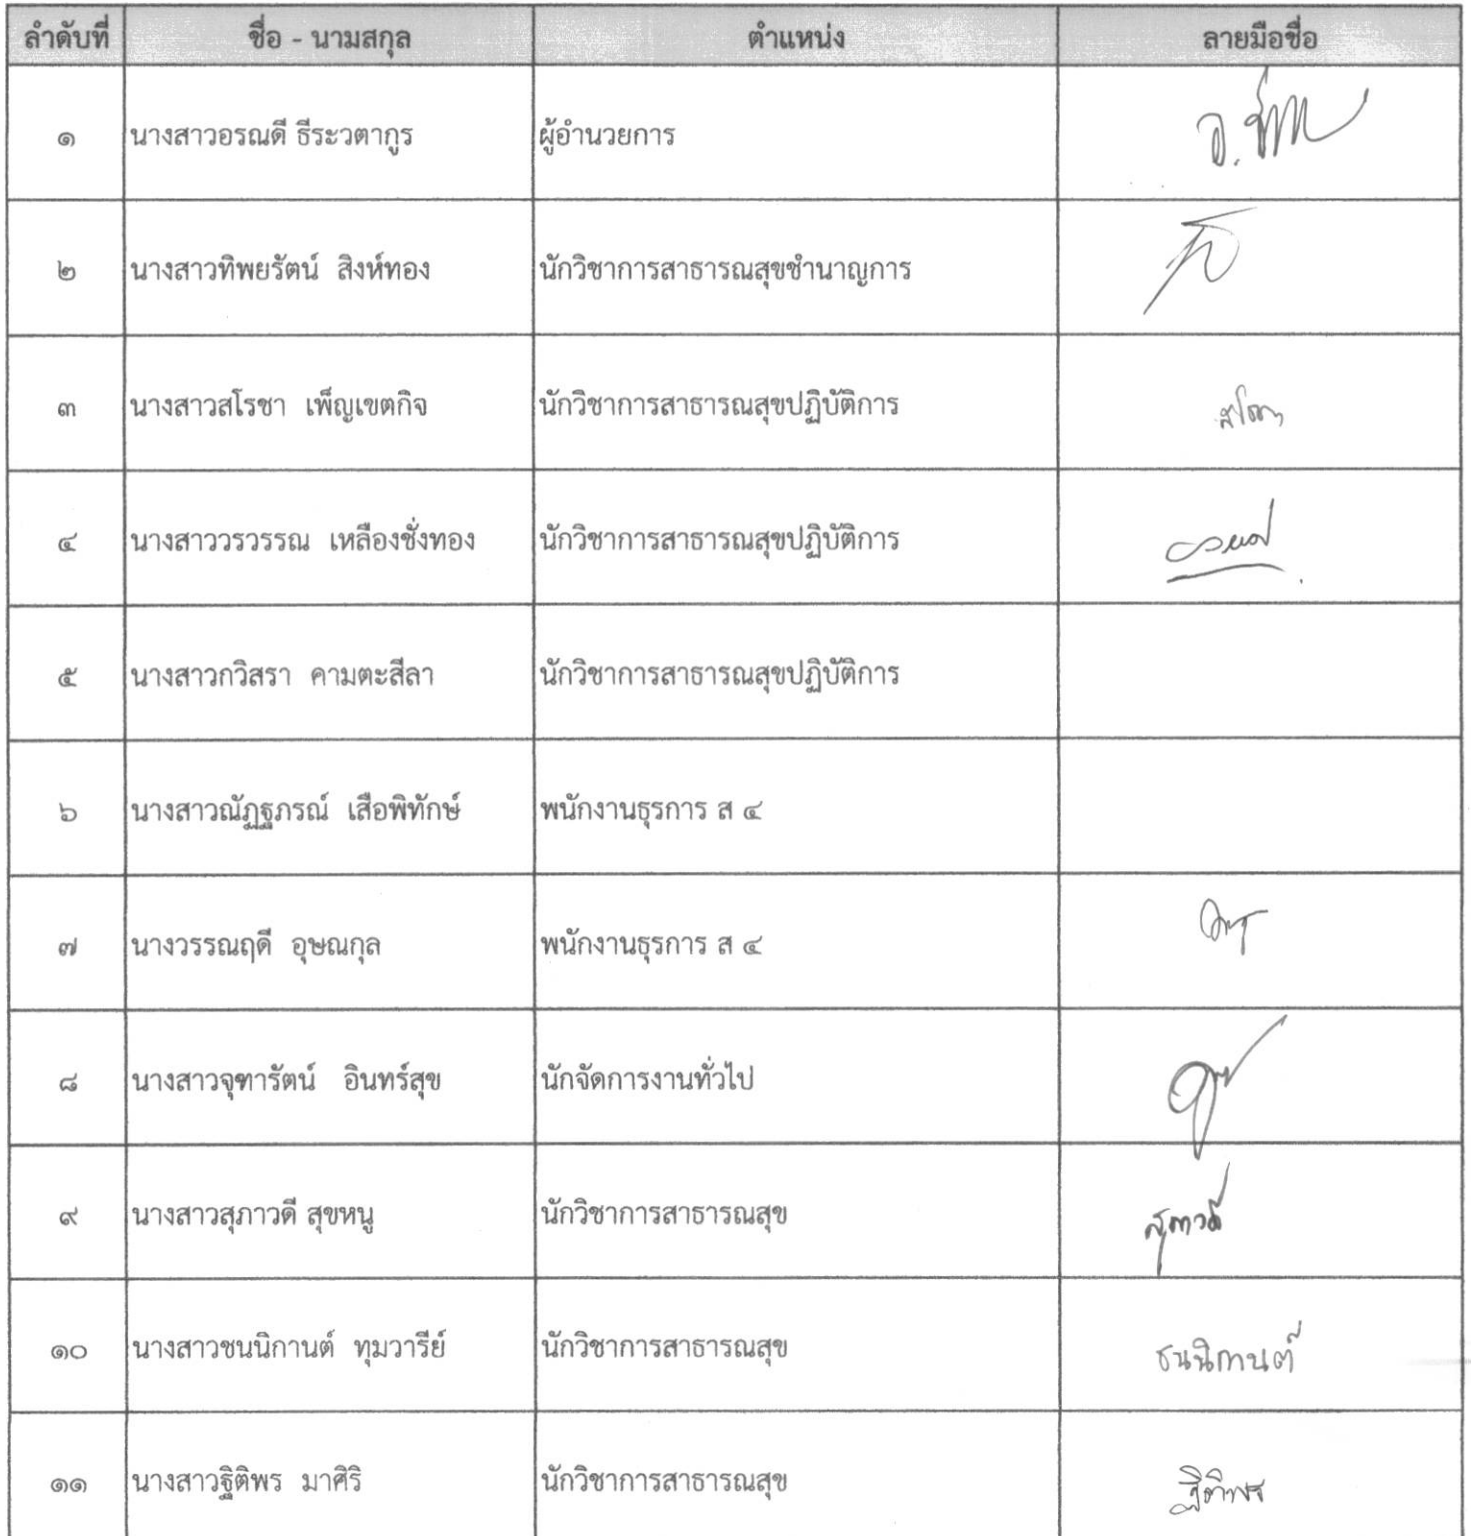 ลำดับที่ ชื่อ - นามสกุล ตำแหน่ง ลายมือชื่อ
๑ นางสาวอรณดี ธีระวตากูร ผู้อำนวยการ
๒ นางสาวทิพยรัตน์ สิงห์ทอง นักวิชาการสาธารณสุขชำนาญการ
๓ นางสาวสโรชา เพ็ญเขตกิจ นักวิชาการสาธารณสุขปฏิบัติการ สโรชา
๔ นางสาววรวรรณ เหลืองชั่งทอง นักวิชาการสาธารณสุขปฏิบัติการ
๕ นางสาวกวิสรา คามตะสีลา นักวิชาการสาธารณสุขปฏิบัติการ
๖ นางสาวณัฏฐภรณ์ เสือพิทักษ์ พนักงานธุรการ ส ๔
๗ นางวรรณฤดี อุษณกุล พนักงานธุรการ ส ๔
๘ นางสาวจุฑารัตน์ อินทร์สุข นักจัดการงานทั่วไป
๙ นางสาวสุภาวดี สุขหนู นักวิชาการสาธารณสุข สุภาวดี
๑๐ นางสาวชนนิกานต์ ทุมวารีย์ นักวิชาการสาธารณสุข ชนนิกานต์
๑๑ นางสาวฐิติพร มาศิริ นักวิชาการสาธารณสุข ฐิติพร